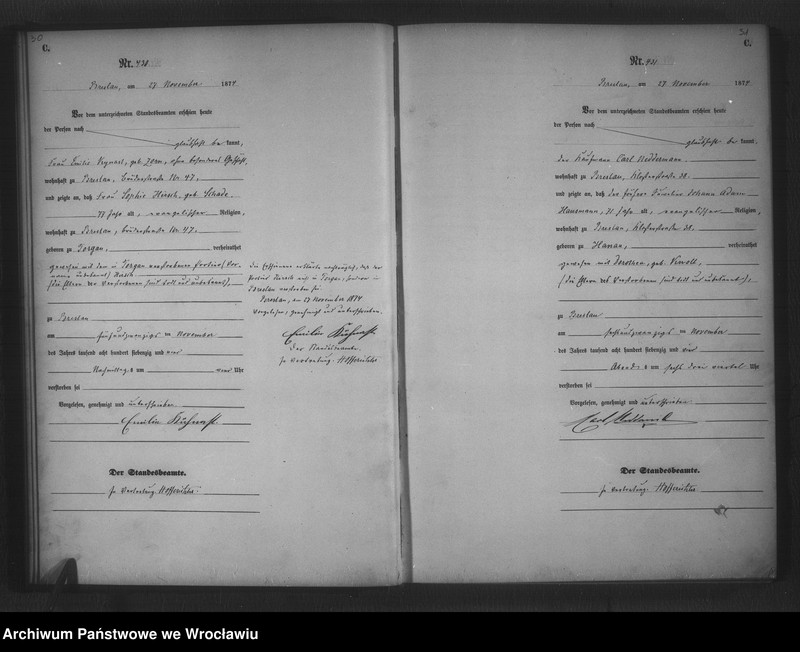 30
C.
Nr. 430
Breslau, am 27 November 1874
Vor dem unterzeichneten Standesbeamten erschien heute
der Person nach
glaubhaft bekannt,
Frau Emilie geb. ohne besonderes Geschäft,
wohnhaft zu Breslau, Nr. 47,
und zeigte an, daß Frau Sophie Hirsch, geb. Schade
77 Jahr alt, evangelischer Religion,
wohnhaft zu Breslau, Nr. 47,
geboren zu Torgau, verheirathet
gewesen mit dem in Torgau verstorbenen
Hirsch
(die Eltern der Verstorbenen sind todt und unbekannt),
zu Breslau
am fünfundzwanzigsten November
des Jahres tausend acht hundert siebenzig und vier
Nachmittags um vier Uhr
verstorben sei
Vorgelesen, genehmigt und unterschrieben
Emilie
Der Standesbeamte.
In Vertretung.
Die Erschienene erklärte nachträglich, daß der
Hirsch nicht in Torgau, sondern in
Breslau verstorben sei
Breslau, am 27 November 1874
Vorgelesen, genehmigt und unterschrieben.
Emilie
Der Standesbeamte.
In Vertretung.
31
C.
Nr. 431
Breslau, am 27 November 1874
Vor dem unterzeichneten Standesbeamten erschien heute
der Person nach
glaubhaft bekannt,
der Kaufmann Carl Neddermann,
wohnhaft zu Breslau, Klosterstraße 38.
und zeigte an, daß der frühere Johann Adam
Hausmann, 71 Jahr alt, evangelischer Religion,
wohnhaft zu Breslau, Klosterstraße 38.
geboren zu Hanau, verheirathet
gewesen mit Dorothea, geb.
(die Eltern des Verstorbenen sind todt und unbekannt),
zu Breslau
am sechsundzwanzigsten November
des Jahres tausend acht hundert siebenzig und vier
Abends um sechs drei viertel Uhr
verstorben sei
Vorgelesen, genehmigt und unterschrieben
Carl Neddermann
Der Standesbeamte.
In Vertretung.
Archiwum Państwowe we Wrocławiu